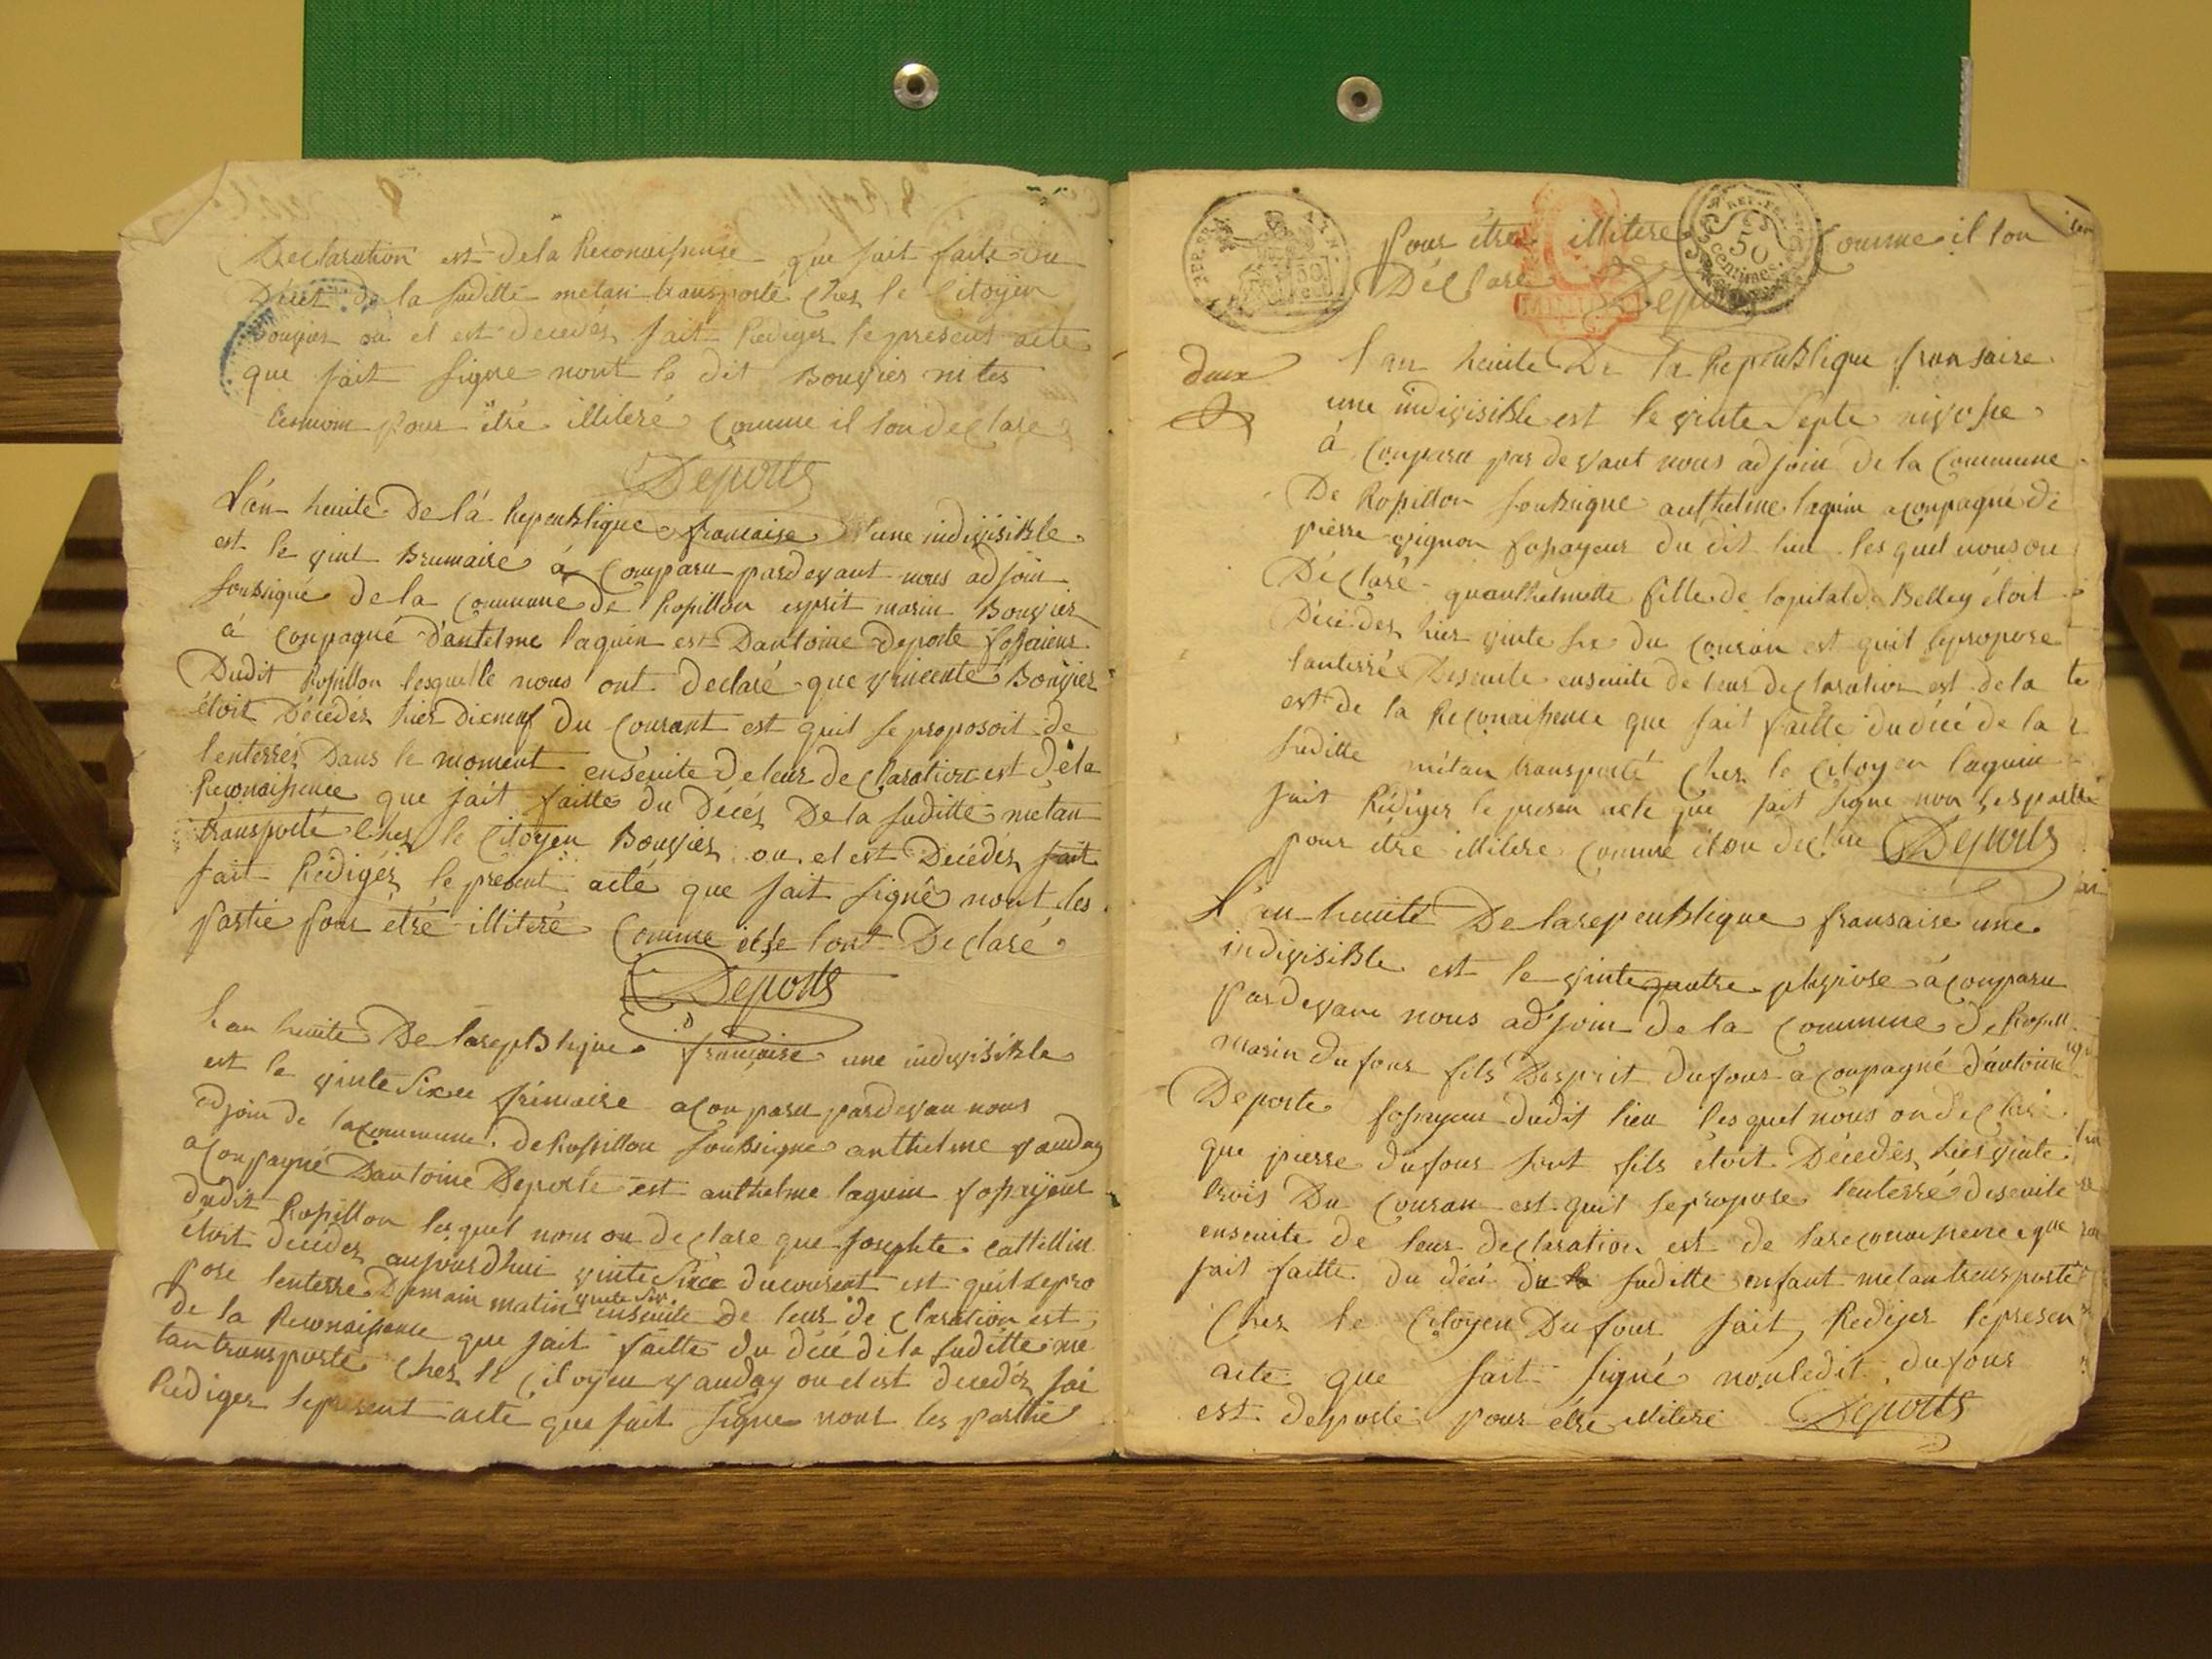 Declaration est dela Reconaissence que jait faite du
Déces de la suditte metan transporté chez le Citoyen
Bouvier ou el est decedés jait Rediger le present acte
que jait signe nont le dit Bouvier ni les
temoin pour être illiteré comme il lon declare
Deports
L'an huite De la Repeublique francaise une indivisible
est le vint Brumaire à Comparu pardevant nous adjoin
soussigné de la Commune de Rossillon esprit marin Bouvier
à Conpagné D'antelme laguin est Dantoine Deporte fossaieur
Dudit Rossillon lesquelle nous ont declaré que vincente Bouvier
étoit Décédés hier Dicneuf du Courant est quil se proposoit de
lenterrés Dans le moment enseuite de leur declaration est dela
Reconaissence que jait faitte du Décés De la suditte metan
transporté Chez le Citoyen Bouvier ou el est Decédés jait
fait Rédigér le present acté que jait signé nont les
partie pour etré illiteré Comme il se lont Declaré
Deports
Lan huite De la repblique francaise une indivisible
est le vinte Sixe frimaire a Conparu pardevan nous
adjoin de la commune de Rossillon soussigne anthelme vauday
a Conpagné Dantoine Deporte est anthelme laguin fossayeur
dudit Rossillon lesquel nous on declare que Josephte Cattellin
étoit decédés aujourdhui vinte Sixe du courent est quil se pro
pose lenterre Demain matin vinte six enseuite de leur declaration est
de la Reconaissance que jait faitte du décé de la suditte me
tan transporté Chez le Citoyen vauday ou el est decedés jai
Rediger le present acté que jait signe nont les partie
Pour étre illitere Comme il lon
Déclaré Deports
REP. FRA.
50
centimes
deux
l'an heuite De la Repeublique fransaire
une indivisible est le vinte Septe nivose
à Conparu par devant nous adjoin de la Commune
De Rossillon soussigne anthelme laguin aconpagné de
pierre vignon fossayeur du dit lieu lesquel nous on
Déclaré quanthelmette fille de lopital de Belley étoit
Décédés hier vinte six du Couran est quil se propose
lanterrés Deseuite enseuite de leur declaration est dela
est de la Reconaissence que jait faitte du décé de la
suditte métan transporté Chez le Citoyen laguin
jait Rédiger le presen acte que jait signe non les partie
pour étre illitere comme il on declare Deports
L'an huité De la repeublique fransaise une
indivisible est le vinte quatre pluviose à conparu
pardevan nous adjoin de la Commune de Rossill
marin dufour fils Desprit dufour a Conpagné d'antoine
Deporte fossayeur dudit lieu lesquel nous on declaré
que pierre dufour sont fils étoit Décédés hier vinte
trois Du Couran est quil se propose lenterré deseuite
enseuite de leur declaration est de la reconaissence que
jait faitte du décé du la suditte enfant metan transporté
Chez le Citoyen Dufour jait Rediger le presen
acte que jait signé non ledit dufour
est deporte pour étre illiteré Deports